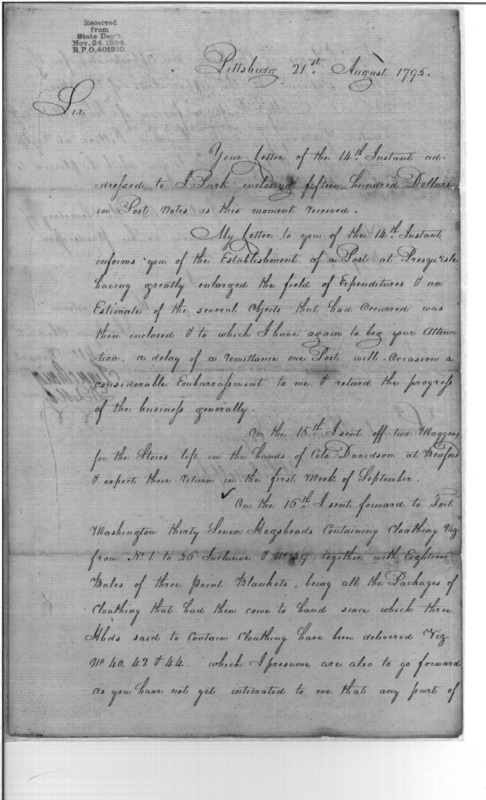 Received
from
State Dep't.
Nov. 24, 1894.
R.P.O, 401310.
Pittsburg 21st August 1795.
Sir
Your Letter of the 14th Instant ad-
dressed to I Park enclosing fifteen hundred Dollars
in Post Notes is this moment received.
My Letter to you of the 14th Instant
informs you of the Establishment of a Post at Presqu Isle
having greatly enlarged the field of Expenditures & an
Estimate of the several Objects that had Occured was
then enclosed & to which I have again to beg your Atten-
tion, a delay of a remittance one Post will Occasion a
considerable Embarrassment to me & retard the progress
of the business generally.
On the 15th I sent off two Waggons
for the Stores left in the hands of Colo Davidson at Bedford
& expect their return in the first Week of September.
On the 16th I sent forward to Fort
Washington thirty Seven Hogsheads Containing Cloathing Viz
from No 1 to 36 Inclusive & No 39 together with Eighteen
Bales of three point Blankets, being all the Packages of
Cloathing that had then come to hand since which three
Hhds said to Contain Cloathing have been delivered Viz
No 40. 42 & 44. which I presume are also to go forward
as you have not yet intimated to me that any part of